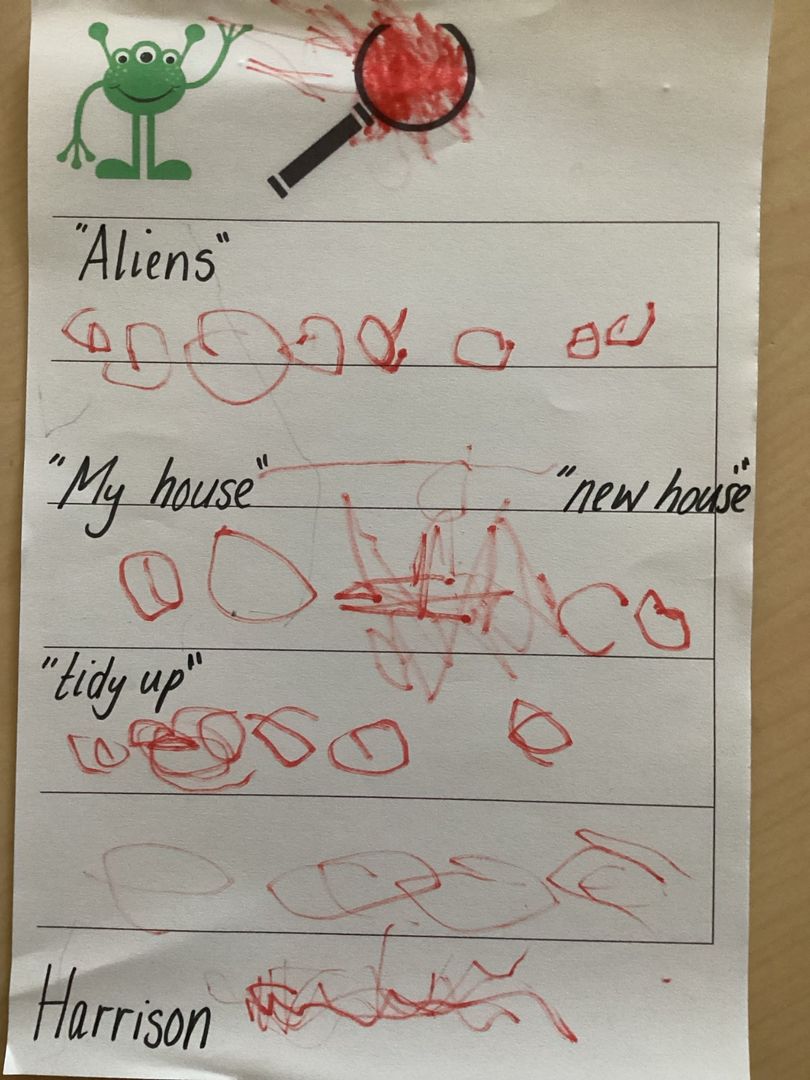 "Aliens"
"My house" "new house"
"tidy up"
Harrison